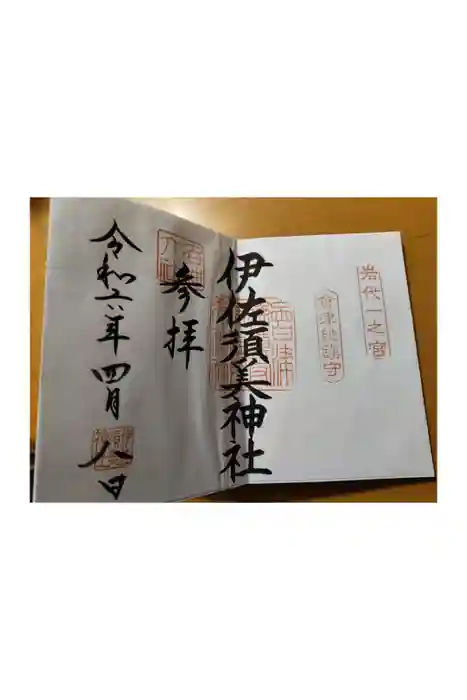 岩代一之宮
会津総鎮守
伊佐須美神社
参拝
令和六年四月八日